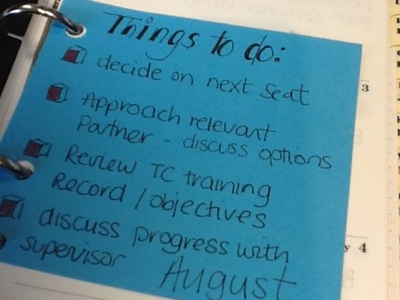 Things to do:
decide on next seat
Approach relevant
Partner - discuss options
Review TC training
Record / objectives
discuss progress with
supervisor August
3
y 4